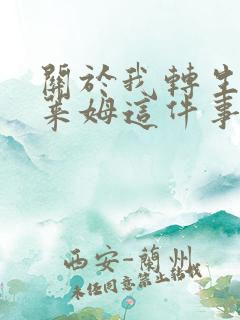 關於我轉生
萊姆這件事
西安-蘭州
未经同意禁止转载